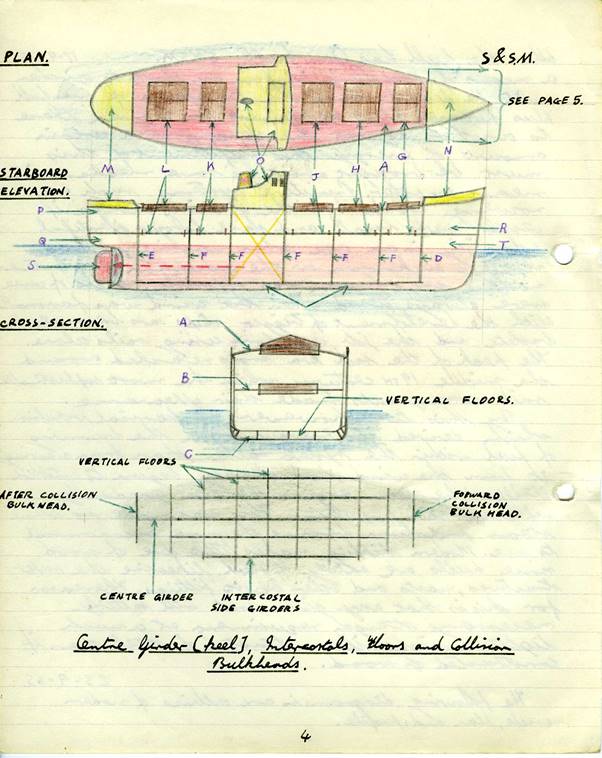 PLAN.
S & S.M.
SEE PAGE 5.
M L K O J H A G N
STARBOARD
ELEVATION.
P
R
Q
T
S
E F F F F F D
CROSS-SECTION.
A
B
VERTICAL FLOORS.
C
VERTICAL FLOORS
AFTER COLLISION
BULKHEAD.
FORWARD
COLLISION
BULK HEAD.
CENTRE GIRDER
INTERCOSTAL
SIDE GIRDERS
Centre Girder (keel), Intercostals, Floors and Collision
Bulkheads.
4